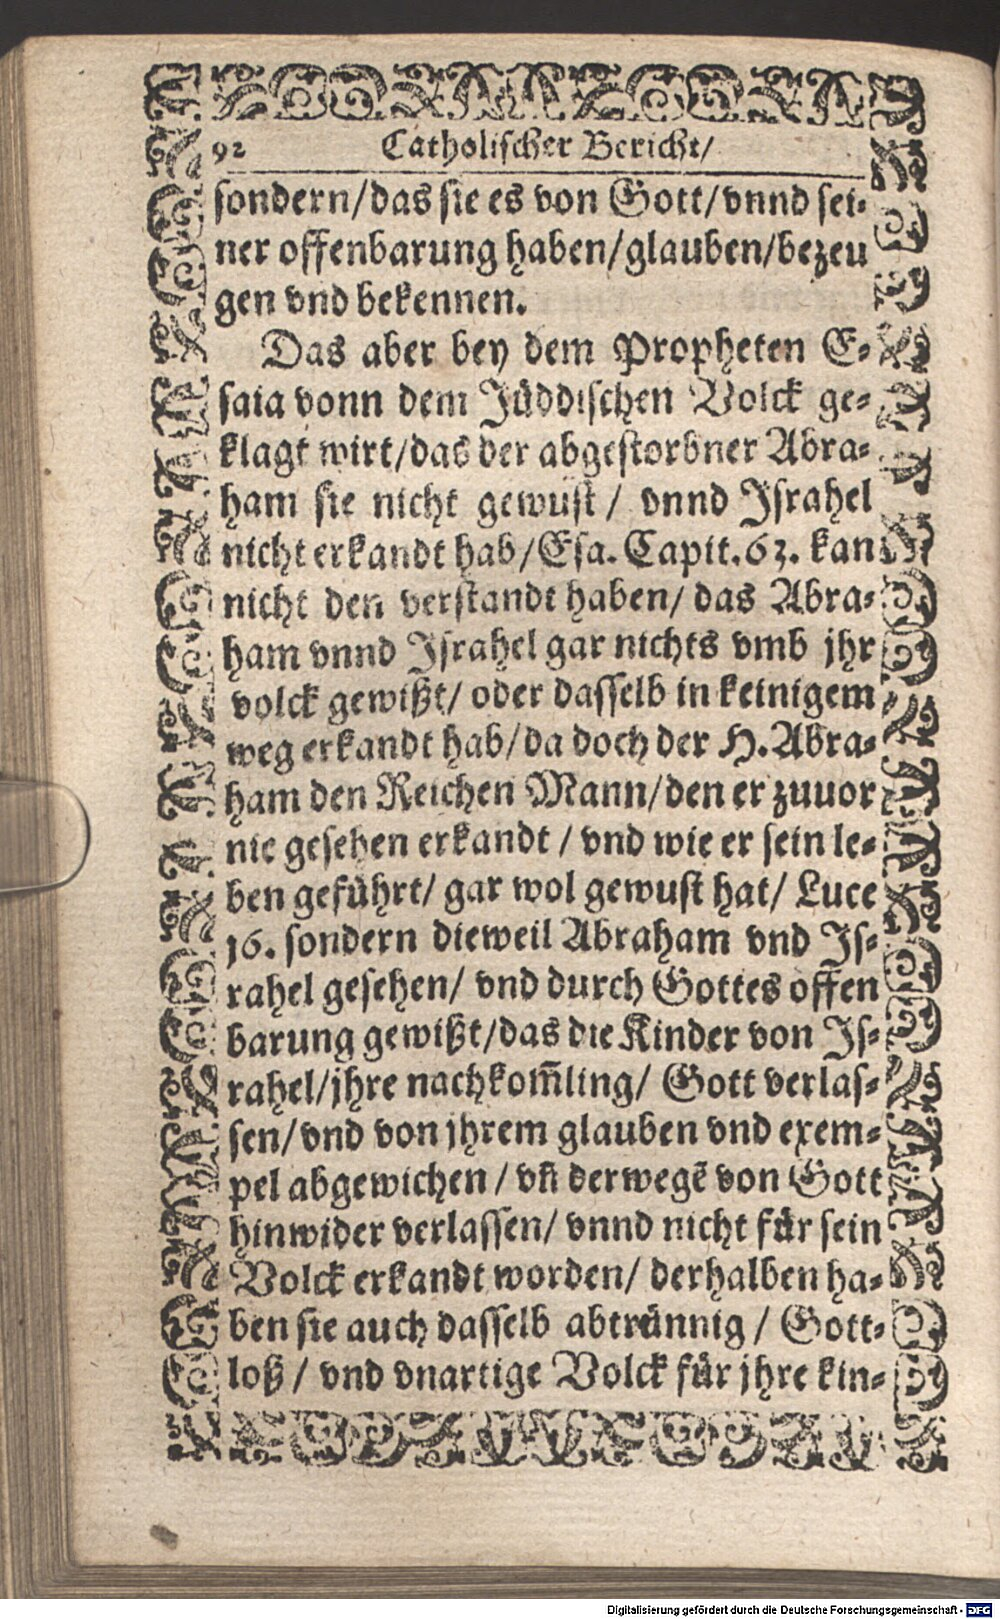 92 Catholischer Bericht/
sondern/das sie es von Gott/vnnd sei-
ner offenbarung haben/glauben/bezeu
gen vnd bekennen.
Das aber bey dem Propheten E-
saia vonn dem Jüddischen Volck ge-
klagt wirt/das der abgestorbner Abra-
ham sie nicht gewust/ vnnd Israhel
nicht erkandt hab/Esa. Capit.63. kan
nicht den verstandt haben/ das Abra-
ham vnnd Israhel gar nichts vmb jhr
volck gewißt/ oder dasselb in keinigem
weg erkandt hab/da doch der H.Abra-
ham den Reichen Mann/den er zuuor
nie gesehen erkandt / vnd wie er sein le-
ben geführt/ gar wol gewust hat/ Luce
16. sondern dieweil Abraham vnd Is-
rahel gesehen/ vnd durch Gottes offen
barung gewißt/das die Kinder von Is-
rahel/jhre nachkom̃ling/ Gott verlas-
sen/vnd von jhrem glauben vnd exem-
pel abgewichen / vñ derwegẽ von Gott
hinwider verlassen/ vnnd nicht für sein
Volck erkandt worden/ derhalben ha-
ben sie auch dasselb abtrünnig / Gott-
loß / vnd vnartige Volck für jhre kin-
Digitalisierung gefördert durch die Deutsche Forschungsgemeinschaft - DFG